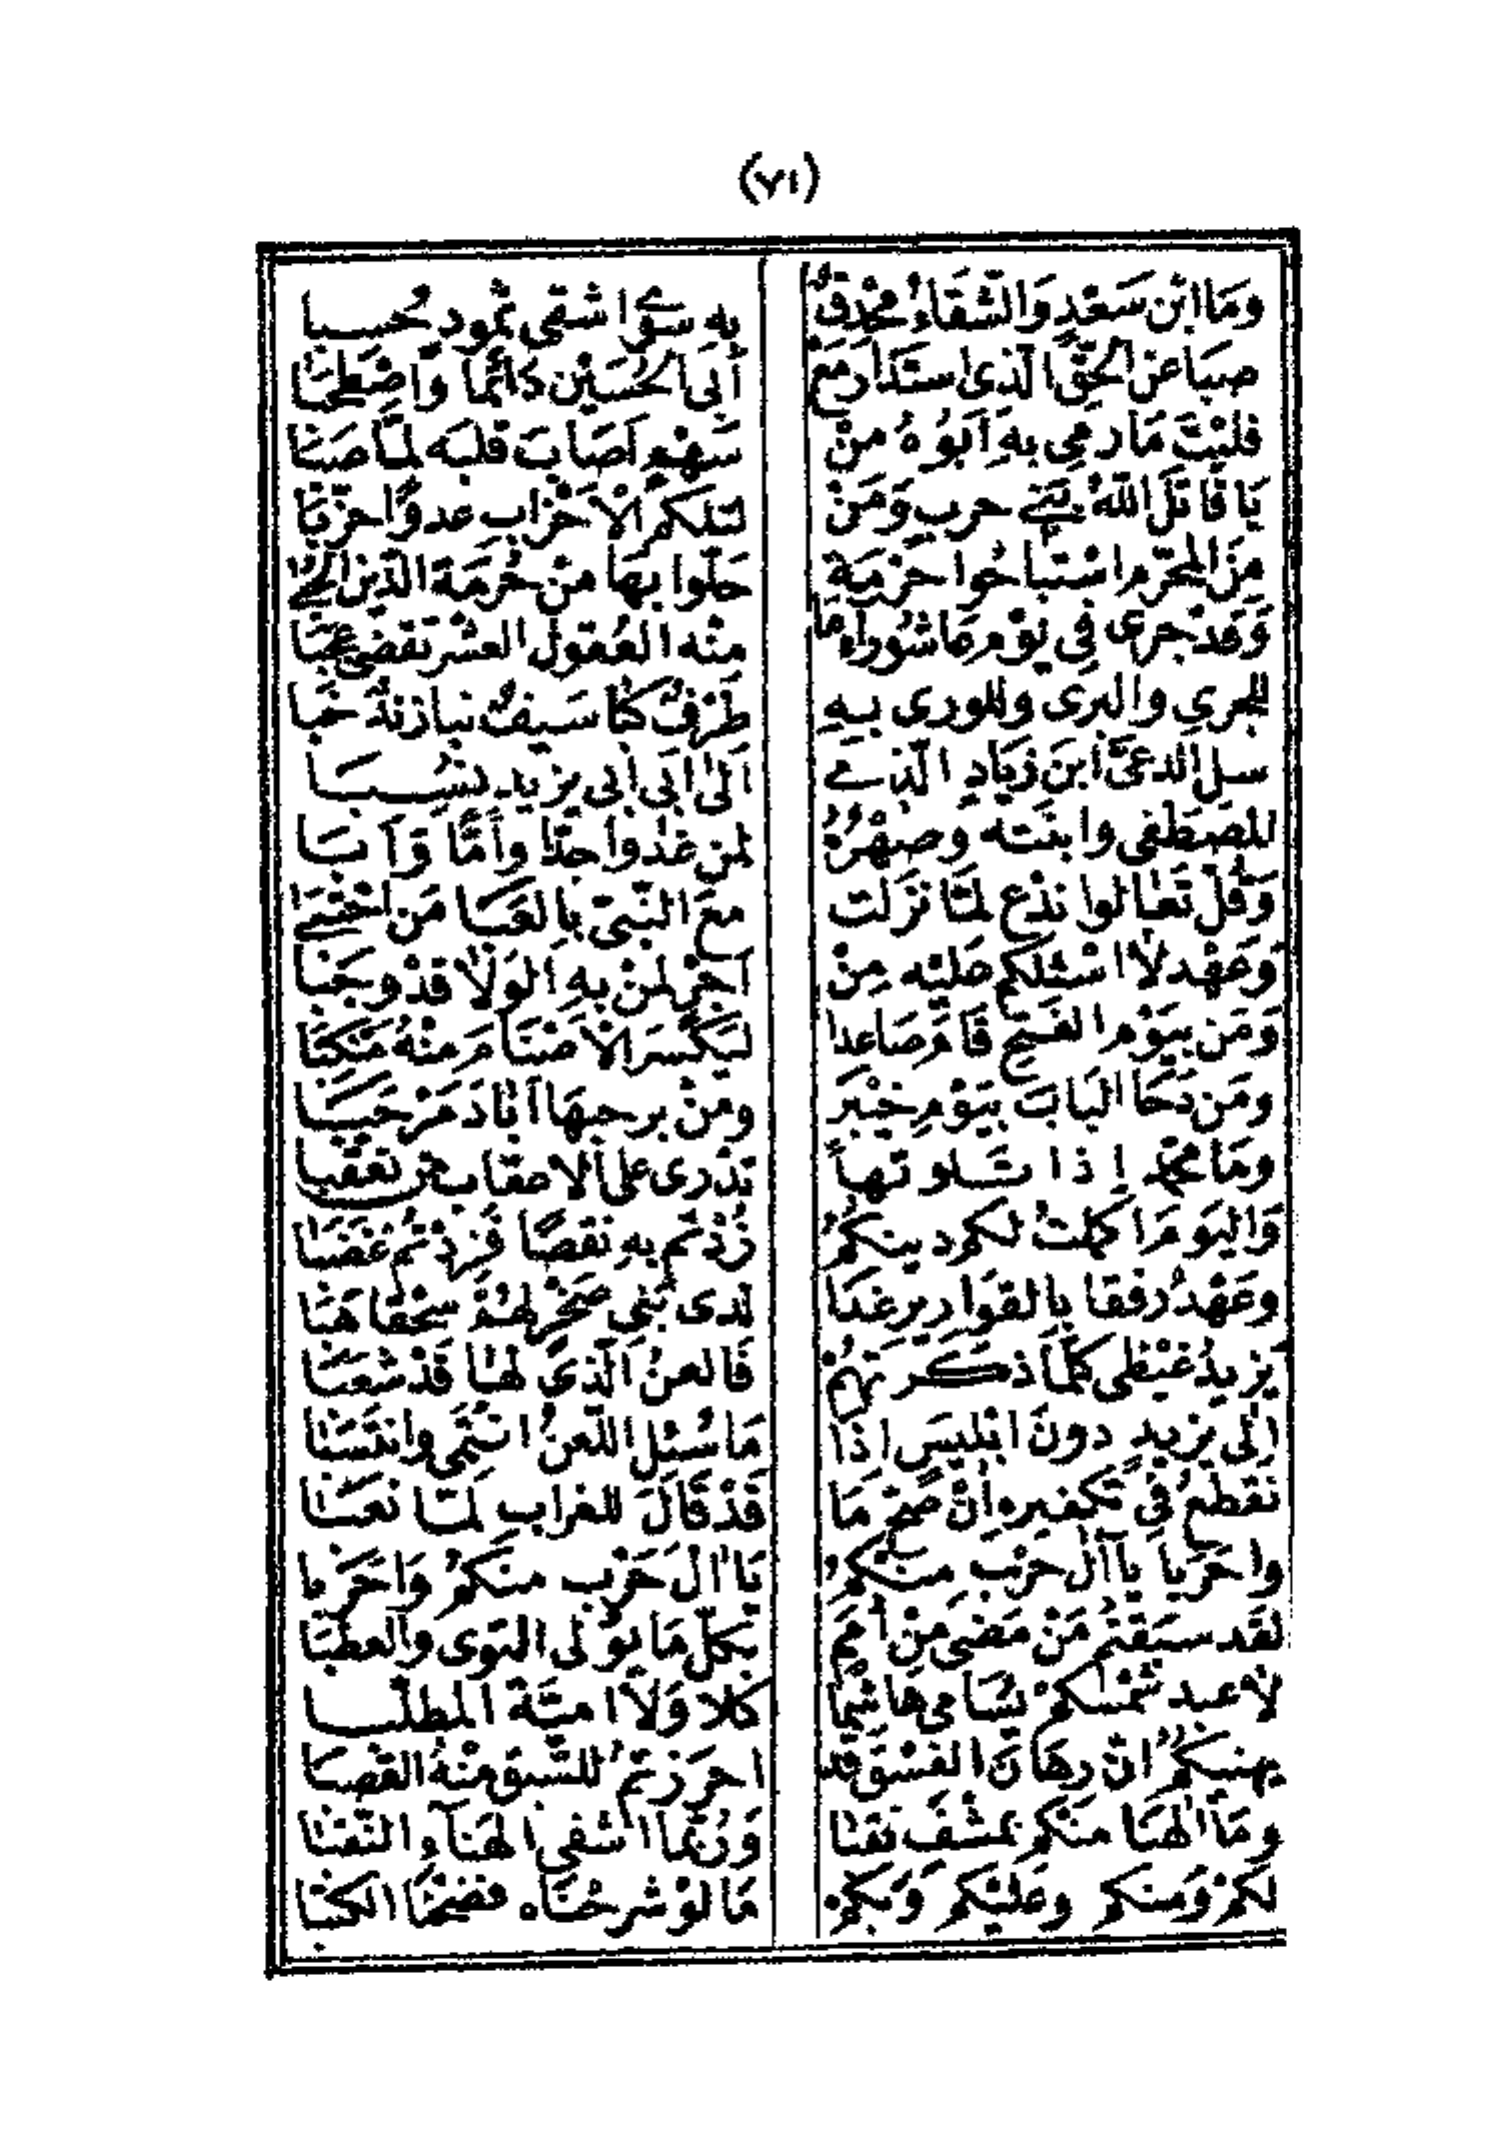 (٧١)
وَمَا ابْن سَعْدٍ وَالشَّقَاءُ مُحْدِقٌ بِهِ سِوَى اشقى ثمود حُسبا
صبَا عَن الحَقِّ الَّذى استدَارَ مَعْ أبى الحُسَيْن دَائمًا وَاضْطَحَبَا
فليْتَ مَا رمى بهِ اَبُوهُ مِنْ سَهْمٍ اَصَابَ قلبَه لمَّا صَبَا
يَا قَاتَلَ اللهُ بَنى حربٍ وَمَنْ لتلكمُ الْاَحْزابِ عدوًا حزّبَا
مِنَ المحَرّم اسْتباحُوا حُرْمَة حَلّوا بهَا مِنْ حُرمَة الدّين الحُبَا
وَقَدْ جرى فى يَوْمِ عَاشُوراء مَا مِنْه العُقول العشر تقضى عَجَبَا
للجري والبرى وللورى بهِ طَرْفٌ كبَا سَيفٌ نبا زندٌ خَبا
سل الدعىَّ ابنَ زيَادٍ الّذى اَلى ابَى أبى يزيد نسُبَا
للمصْطَفى وابنَته وصِهْرُهُ لمن غدوا جدًّا وأمًّا وَآبَا
وَقُلْ تَعَالوا نَدْع لمَّا نزَلت معَ النّبىّ بالعَبا مَن احْتبَى
وَعَهْد لا اسْئلكم عَليْه مِنْ اَجْرٍ لمَنْ بهِ الوَلا قدْ وجَبَا
وَمَن بيَوْم الفَتح قَامَ صَاعدا ليَكْسرَ الاَصْنَامَ مِنْهُ مَنكبَا
ومَن دَحَا البَابَ بيَوْمِ خيْبَر ومَنْ برحبهَا اَبَادَ مَرْحَبَا
ومَا محمّد إذا تَلوتهاَ تدْرى على الاعقاب من تعقبا
وَاليَومَ اكملتُ لكم دينكُمُ زُدْتُم بهِ نقصًا فَزدْتُم غَضَبا
وعَهْدُ رفقا بالقوَارير غدَا لدى بَنى صَخْرٍ لهنَّ سحْقا هَبَا
يزيدُ غيْظى كلّمَا ذكرتهُمْ فَالعنُ الّذى لهَا قَدْ شعَبَا
اِلى يزيد دونَ ابْليسَ اذَا مَا سُئل اللّعنُ انتَمى وانتَسَبا
نَقطعُ فى تكفيره إنْ صَحَّ مَا قَدْ قَالَ للغراب لَمّا نعَبَا
واحَربا يَا آل حَرْب منكُمُ يَا اٰلْ حَرْب منكمُ وَاحَرَبا
لقد سَبقتُم مَنْ مَضى مِنْ اُمَم بكلّ مَا يوْلى التوى والعطَبَا
لا عبد شمْسكمْ يُسَامى هَاشِمًا كلا وَلاَ اميّة المطلّبا
يهنيكُمُ انّ رهَانَ الفسْق قد احرَزتمُ للسَّبق منْهُ القصَبا
ومَا الهنا منكم بمشْفَ نقبَا وَرُبّمَا اشفى الهنَآءِ النّقبَا
لكمْ وَمنكم وعَليْكم وَبكمْ مَا لوْ شرحنَاه فضحْنَا الكتبَا